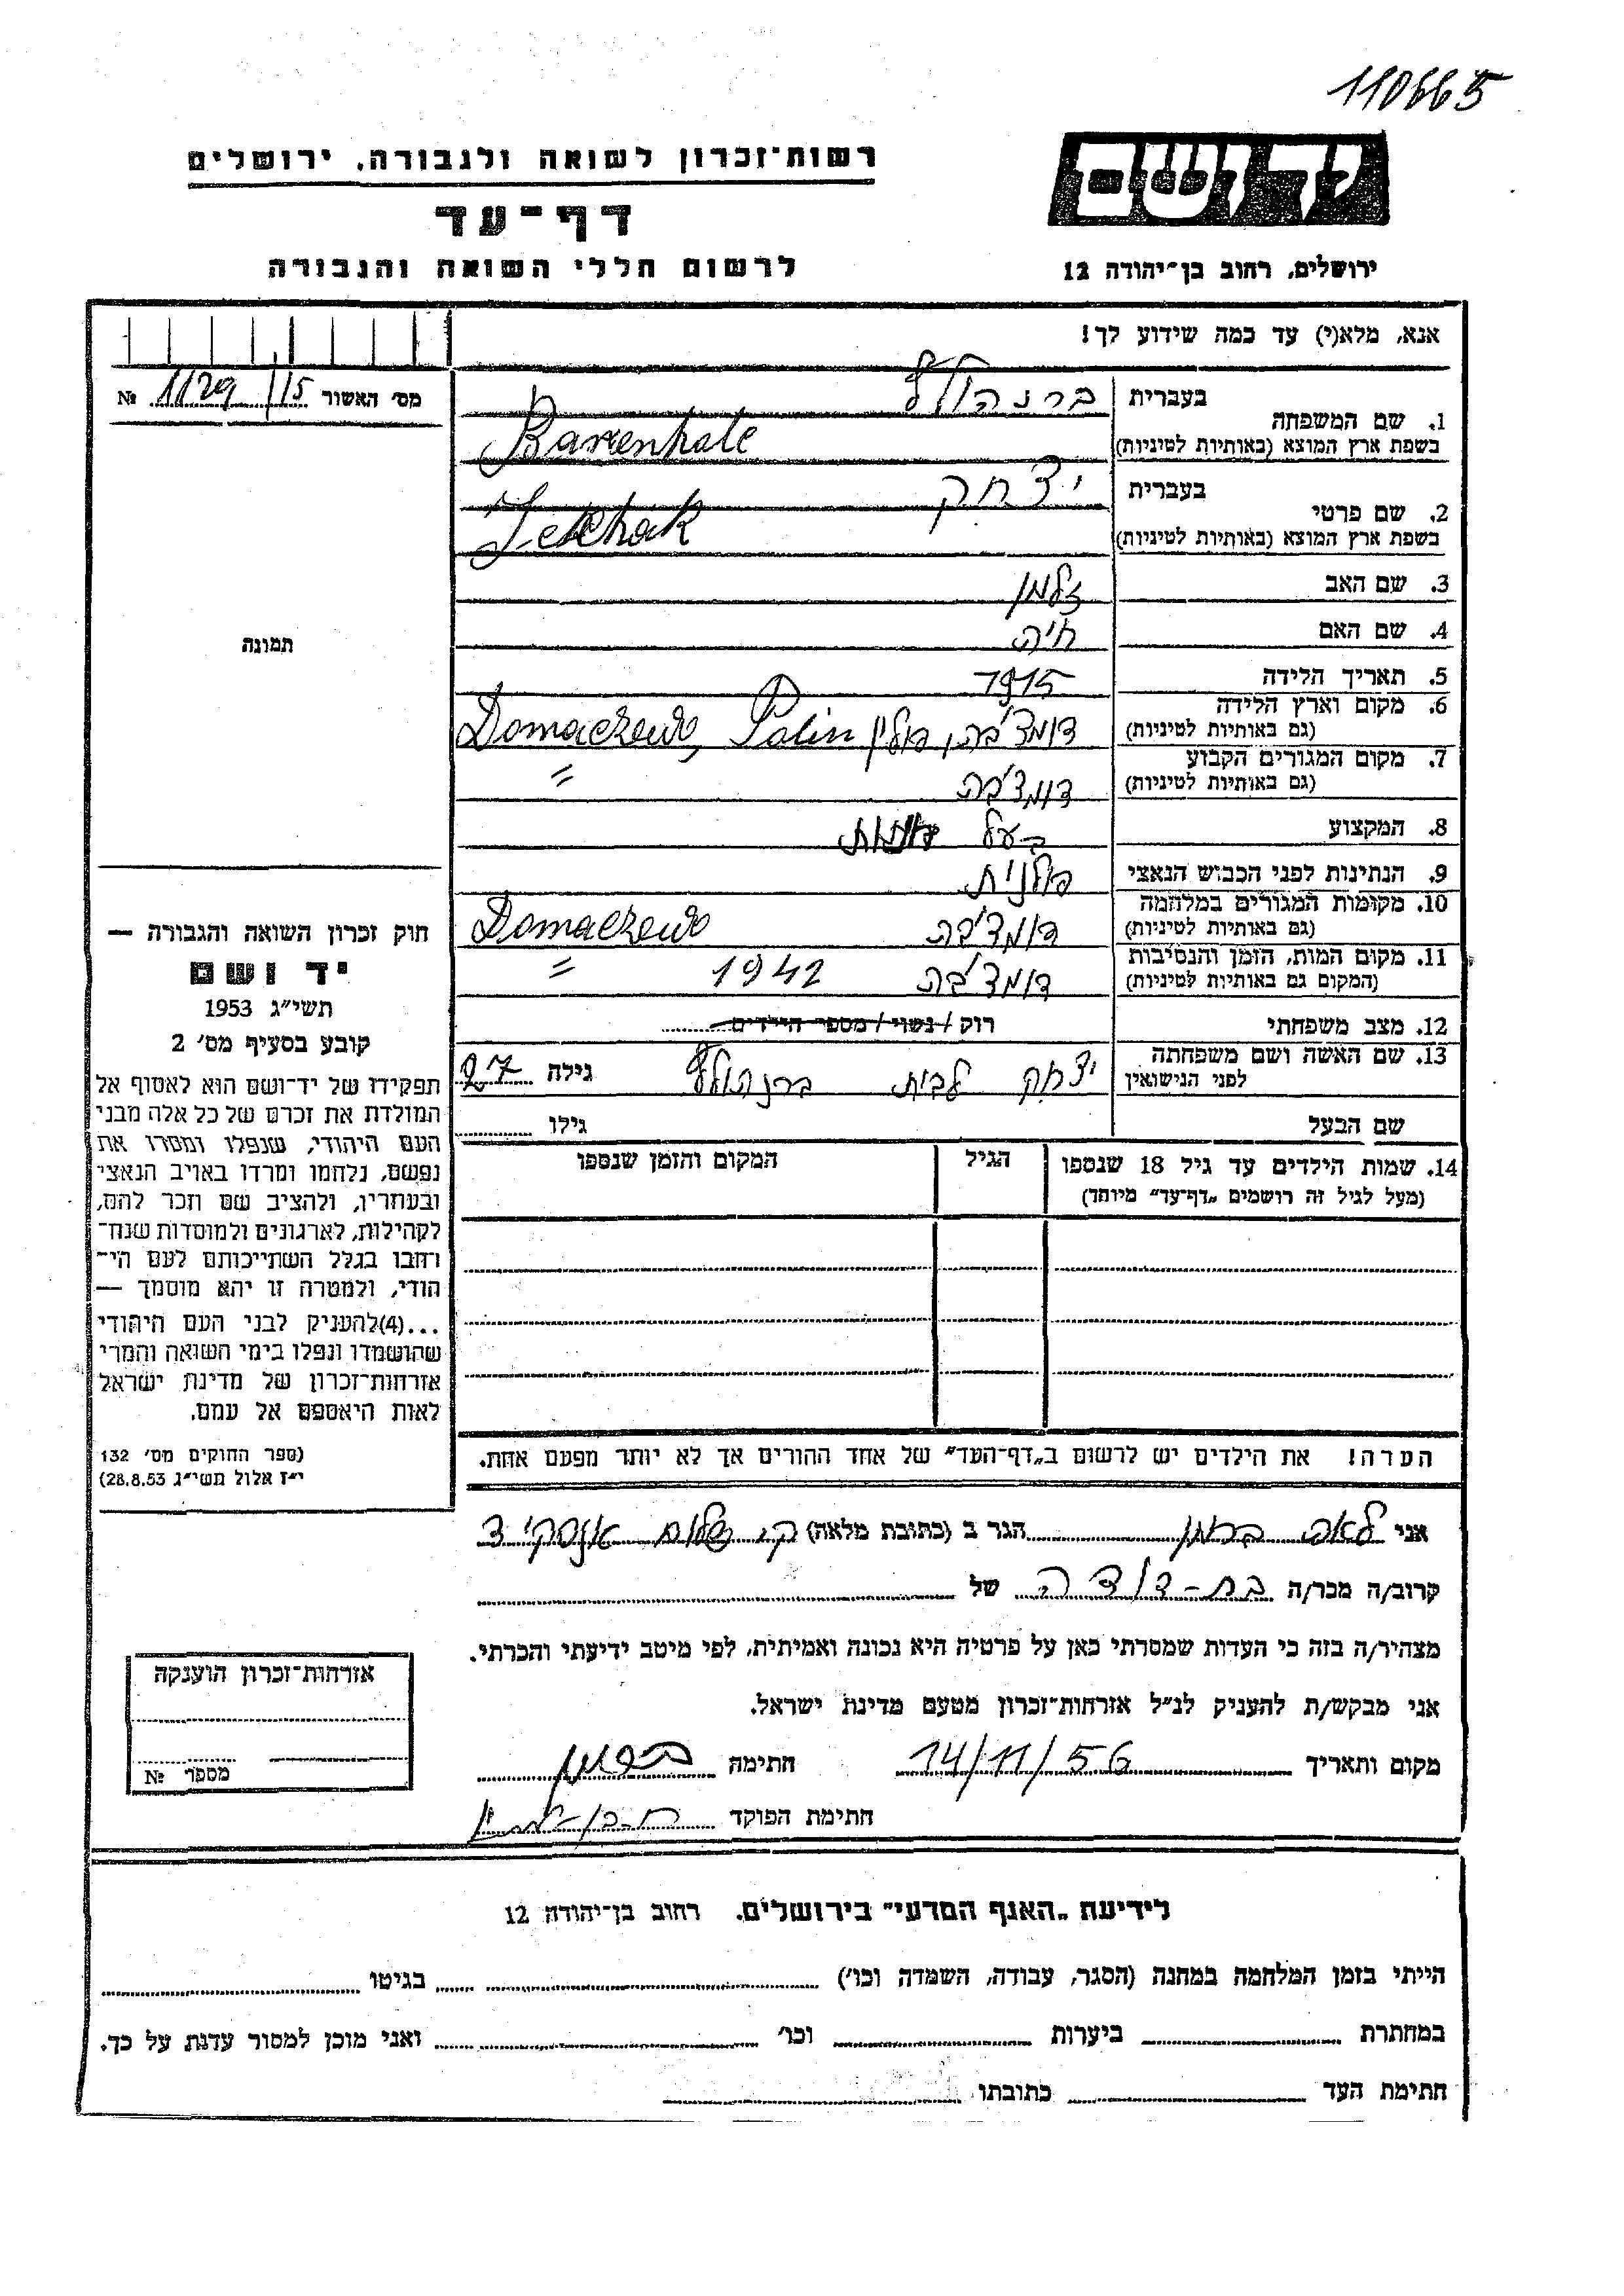 110665
יד ושם
רשות־זכרון לשואה ולגבורה, ירושלים
דף־עד
לרשום חללי השואה והגבורה
ירושלים, רחוב בן־יהודה 12
אנא, מלא(י) עד כמה שידוע לך!
מס׳ האשור 1129/15 №
תמונה
1. שם המשפחה
בעברית ברנהולץ
בשפת ארץ המוצא (באותיות לטיניות)
2. שם פרטי
בעברית יצחק
בשפת ארץ המוצא (באותיות לטיניות)
3. שם האב זלמן
4. שם האם חיה
5. תאריך הלידה 1915
6. מקום וארץ הלידה דומצ'בה, פולין Domaczewo, Polin
(גם באותיות לטיניות)
7. מקום המגורים הקבוע דומצ'בה "
(גם באותיות לטיניות)
8. המקצוע בעל
9. הנתינות לפני הכבוש הנאצי פולנית
10. מקומות המגורים במלחמה דומצ'בה Domaczewo
(גם באותיות לטיניות)
11. מקום המות, הזמן והנסיבות דומצ'בה 1942 "
(המקום גם באותיות לטיניות)
12. מצב משפחתי רוק / נשוי / מספר הילדים
13. שם האשה ושם משפחתה יצחק לבית ברנהולץ גילה 27
לפני הנישואין
שם הבעל גילו
14. שמות הילדים עד גיל 18 שנספו הגיל המקום והזמן שנספו
(מעל לגיל זה רושמים „דף־עד״ מיוחד)
הערה! את הילדים יש לרשום ב„דף־העד״ של אחד ההורים אך לא יותר מפעם אחת.
חוק זכרון השואה והגבורה —
יד ושם
תשי״ג 1953
קובע בסעיף מס׳ 2
תפקידו של יד־ושם הוא לאסוף אל
המולדת את זכרם של כל אלה מבני
העם היהודי, שנפלו ומסרו את
נפשם, נלחמו ומרדו באויב הנאצי
ובעוזריו, ולהציב שם וזכר להם,
לקהילות, לארגונים ולמוסדות שנח־
רבו בגלל השתייכותם לעם הי־
הודי, ולמטרה זו יהא מוסמך —
...(4)להעניק לבני העם היהודי
שהושמדו ונפלו בימי השואה והמרי
אזרחות־זכרון של מדינת ישראל
לאות היאספם אל עמם.
(ספר החוקים מס׳ 132
י״ז אלול תשי״ג 28.8.53)
אני לאה הגר ב (כתובת מלאה) ק. שלום
קרוב/ה מכר/ה בת-דודה של
מצהיר/ה בזה כי העדות שמסרתי כאן על פרטיה היא נכונה ואמיתית, לפי מיטב ידיעתי והכרתי.
אני מבקש/ת להעניק לנ״ל אזרחות־זכרון מטעם מדינת ישראל.
מקום ותאריך 14/11/56 חתימה
חתימת הפוקד
אזרחות־זכרון הוענקה
מספר №
לידיעת „האגף המדעי״ בירושלים. רחוב בן־יהודה 12
הייתי בזמן המלחמה במחנה (הסגר, עבודה, השמדה וכו׳) בגיטו
במחתרת ביערות וכו׳ ואני מוכן למסור עדות על כך.
חתימת העד כתובתו